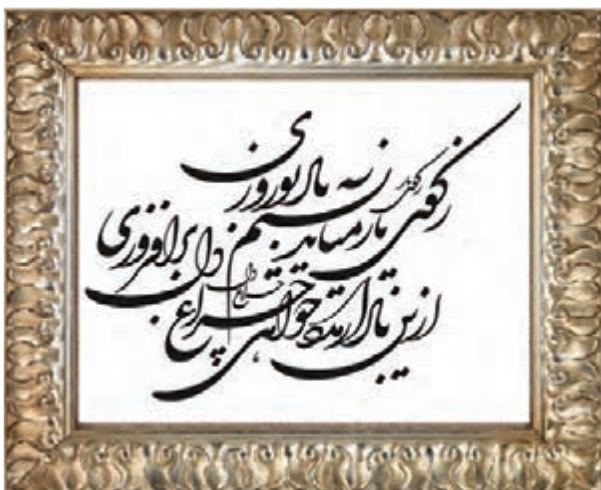 ز کوی یار میاید نسیم باد نوروزی
ازین باد ار مدد خواهی چراغ دل برافروزی
ز کوی
چراغ دل